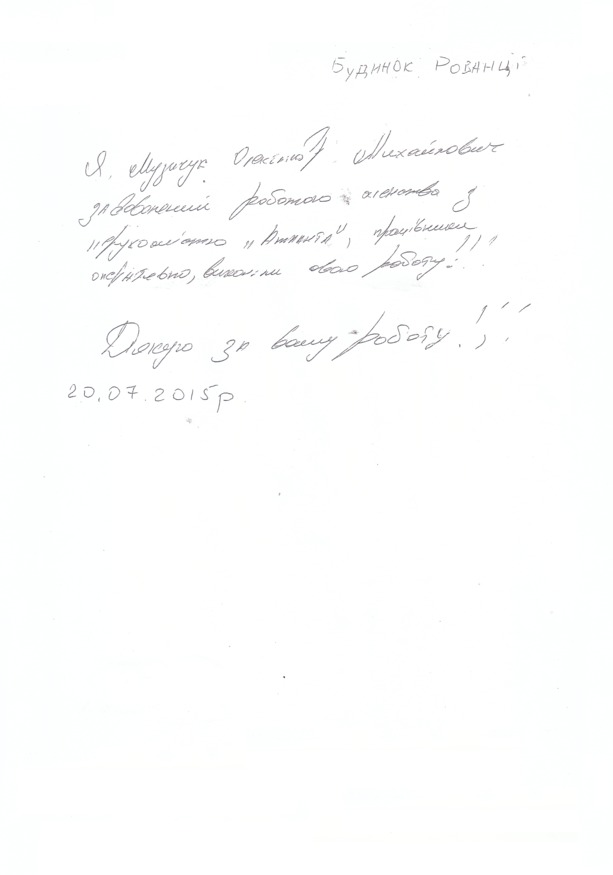 Будинок Рованці
Я, Музичук Михайлович
задоволений роботою агенства з
нерухомістю "Атланта", працівники
оперативно, виконали свою роботу!!!
Дякую за вашу роботу!!!
20.07.2015р